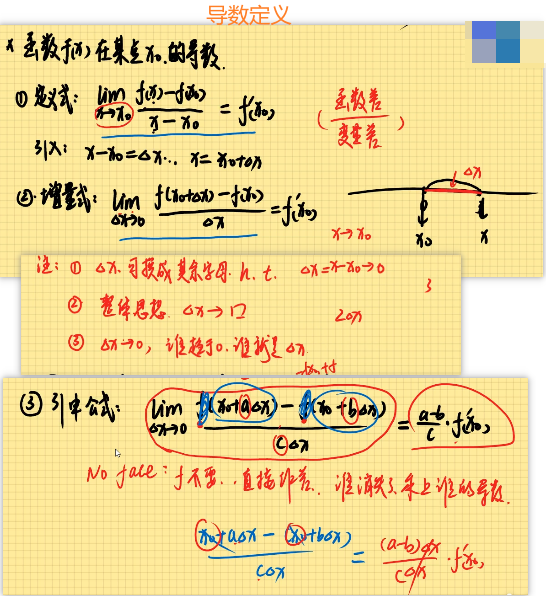 导数定义
* 函数f(x)在某点x₀的导数.
① 定义式: lim_{x→x₀} (f(x)-f(x₀))/(x-x₀) = f'(x₀) (函数差/变量差)
引入: x-x₀=Δx.. x=x₀+Δx
②.增量式: lim_{Δx→0} (f(x₀+Δx)-f(x₀))/Δx = f'(x₀)
Δx
x₀ x
x→x₀
注: ① Δx.可换成其余字母. h. t. Δx=x-x₀→0
3
② 整体思想. Δx→口 2Δx
③ Δx→0, 谁趋于0.谁就是Δx
③ 引申公式: lim_{Δx→0} (f(x₀+aΔx)-f(x₀+bΔx))/(cΔx) = (a-b)/c · f'(x₀)
No face: f不要., 直接作差. 谁消失了.乘上谁的导数.
(x₀+aΔx-(x₀+bΔx))/(cΔx) = ((a-b)Δx)/(cΔx) · f'(x₀)